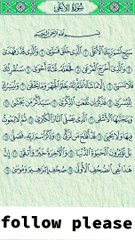 سُورَةُ الأَعْلَى
بِسْمِ اللَّهِ الرَّحْمَنِ الرَّحِيمِ
سَبِّحِ اسْمَ رَبِّكَ الأَعْلَى ١ الَّذِي خَلَقَ فَسَوَّى ٢ وَالَّذِي قَدَّرَ فَهَدَى
٣ وَالَّذِي أَخْرَجَ الْمَرْعَى ٤ فَجَعَلَهُ غُثَاءً أَحْوَى ٥ سَنُقْرِئُكَ
فَلَا تَنسَى ٦ إِلَّا مَا شَاءَ اللَّهُ إِنَّهُ يَعْلَمُ الْجَهْرَ وَمَا يَخْفَى ٧ وَنُيَسِّرُكَ
لِلْيُسْرَى ٨ فَذَكِّرْ إِن نَّفَعَتِ الذِّكْرَى ٩ سَيَذَّكَّرُ مَن يَخْشَى
١٠ وَيَتَجَنَّبُهَا الأَشْقَى ١١ الَّذِي يَصْلَى النَّارَ الْكُبْرَى ١٢ ثُمَّ لَا يَمُوتُ
فِيهَا وَلَا يَحْيَى ١٣ قَدْ أَفْلَحَ مَن تَزَكَّى ١٤ وَذَكَرَ اسْمَ رَبِّهِ فَصَلَّى ١٥
بَلْ تُؤْثِرُونَ الْحَيَاةَ الدُّنْيَا ١٦ وَالآخِرَةُ خَيْرٌ وَأَبْقَى ١٧ إِنَّ هَذَا
لَفِي الصُّحُفِ الأُولَى ١٨ صُحُفِ إِبْرَاهِيمَ وَمُوسَى ١٩
follow please